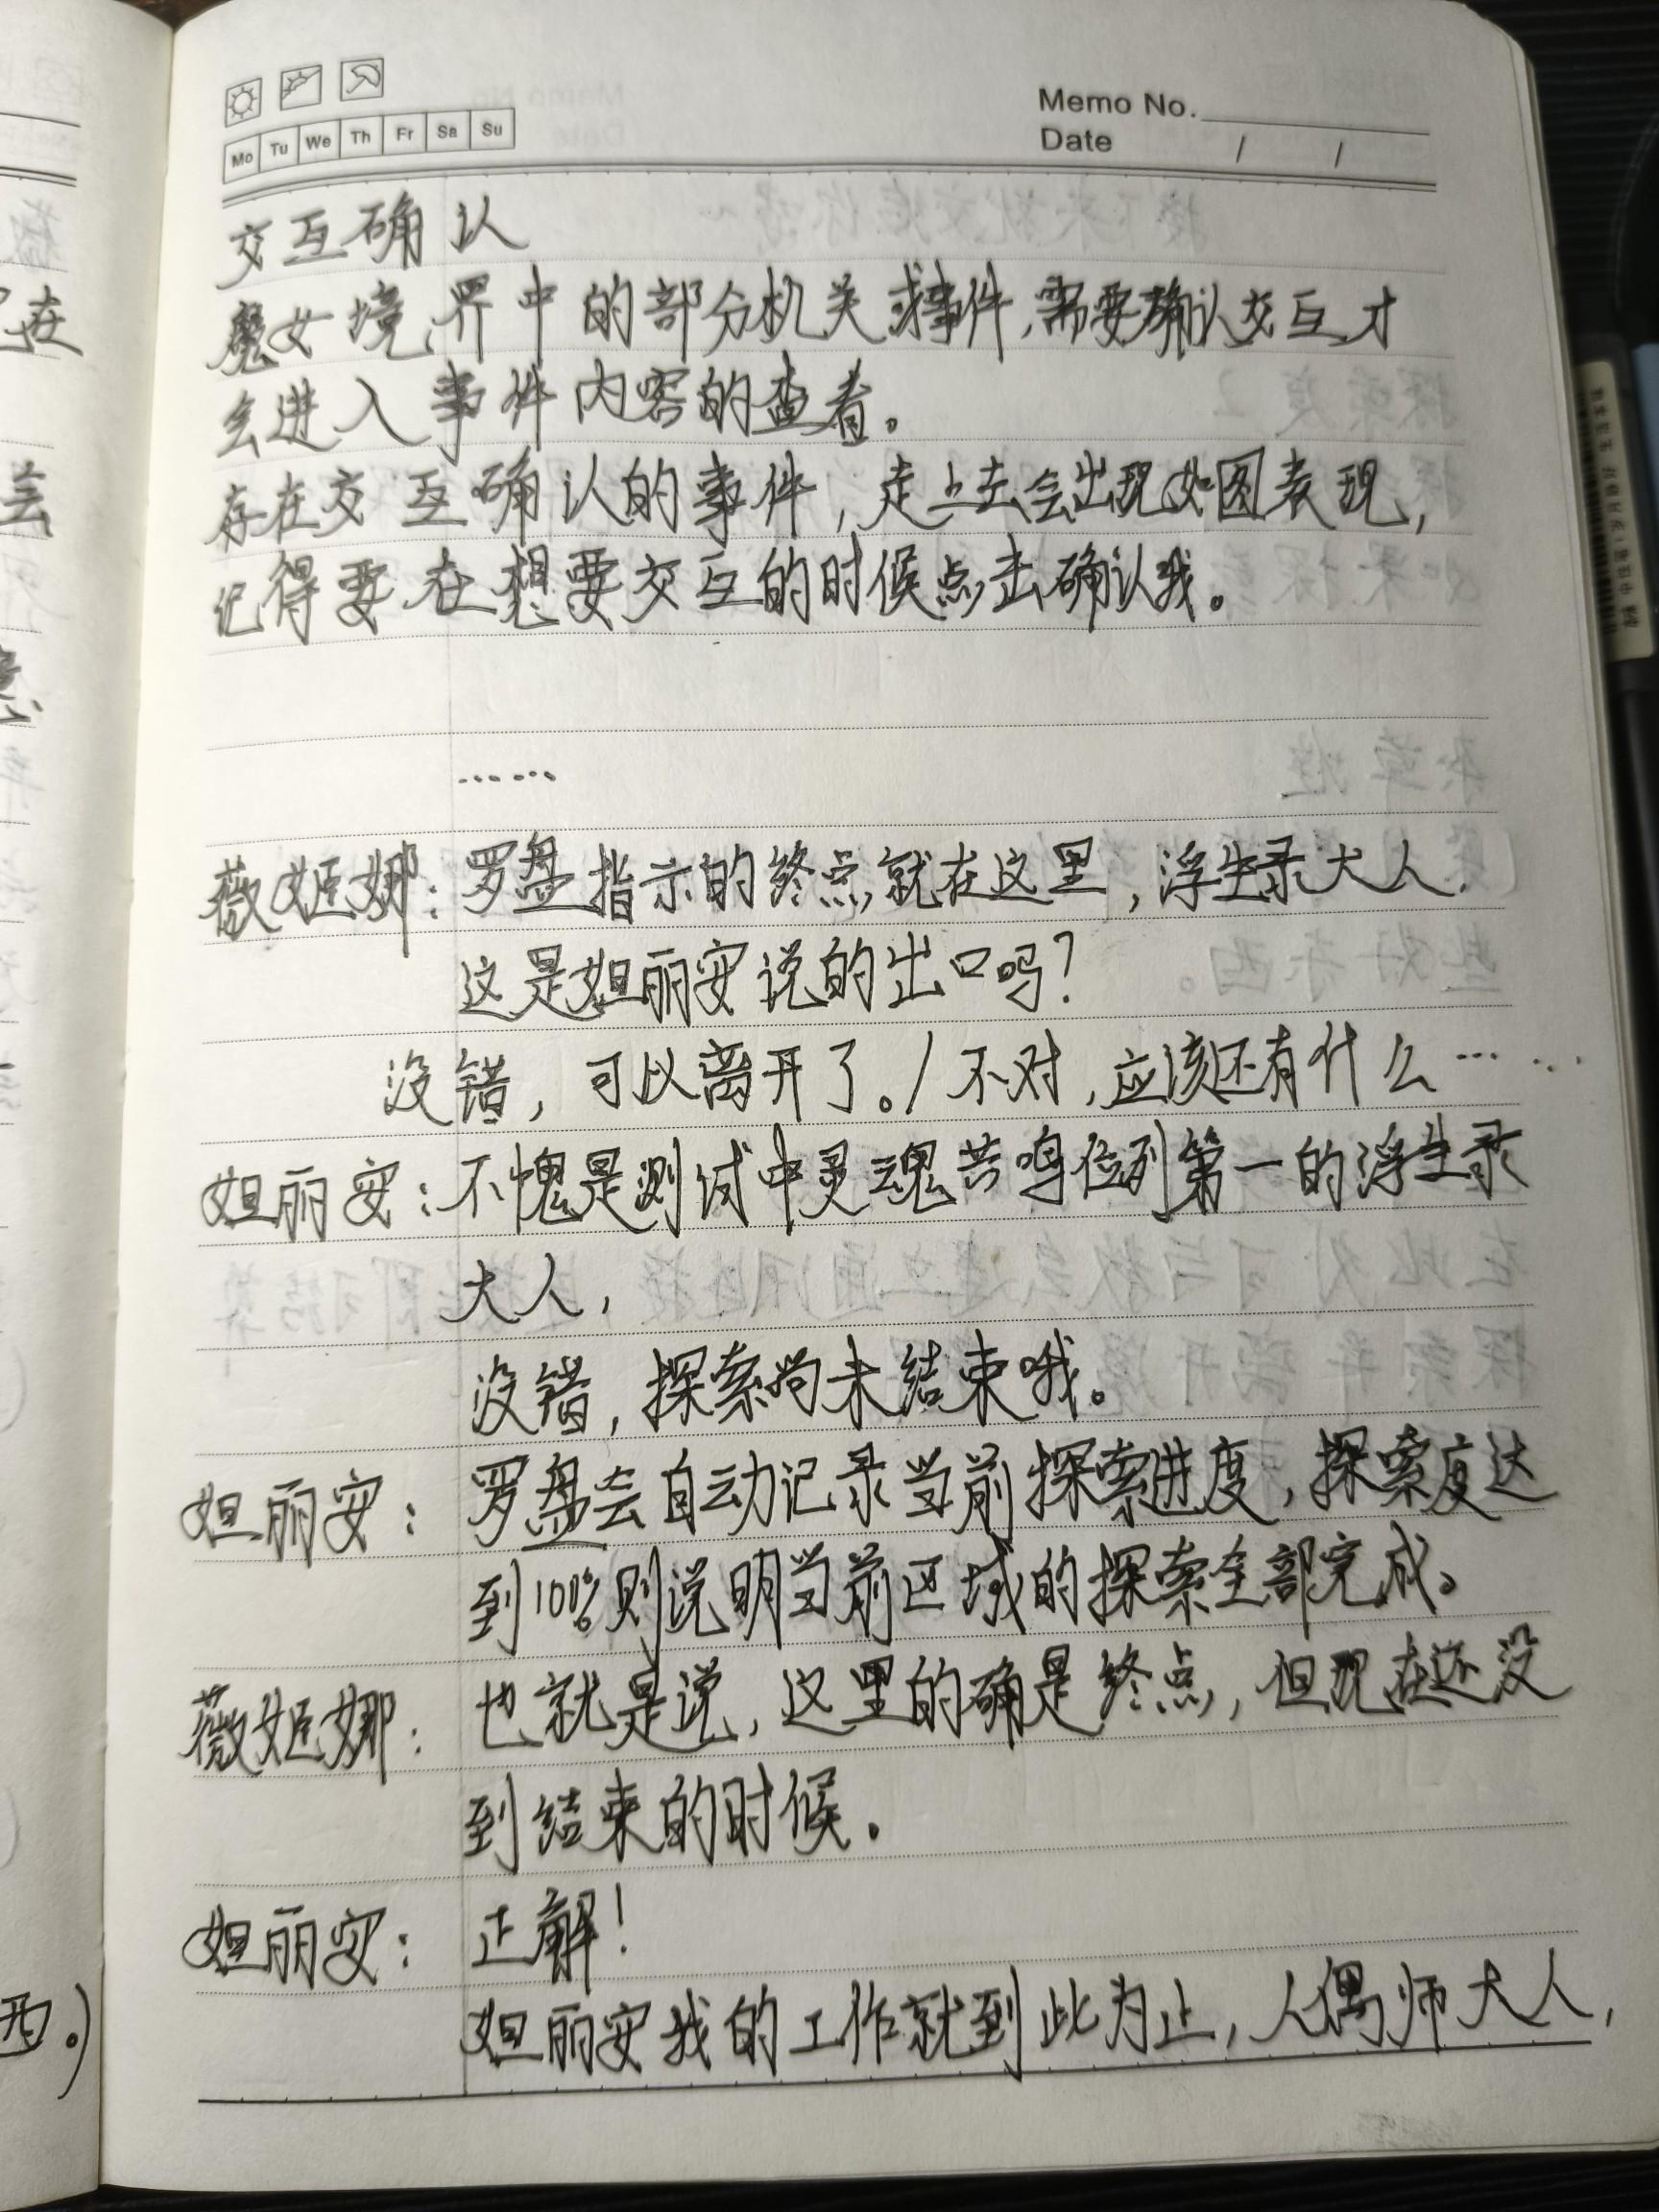 Mo Tu We Th Fr Sa Su
Memo No.
Date / /
交互确认
魔女境界中的部分机关或事件,需要确认交互才
会进入事件内容的查看。
存在交互确认的事件,走上去会出现如图表现,
记得要在想要交互的时候点击确认哦。
……
薇姬娜:罗盘指示的终点就在这里,浮生录大人,
这是妲丽安说的出口吗?
没错,可以离开了。/不对,应该还有什么……
妲丽安:不愧是测试中灵魂共鸣位列第一的浮生录
大人,
没错,探索尚未结束哦。
妲丽安:罗盘会自动记录当前探索进度,探索度达
到100%则说明当前区域的探索全部完成。
薇姬娜:也就是说,这里的确是终点,但现在还没
到结束的时候。
妲丽安:正解!
妲丽安我的工作就到此为止,人偶师大人,